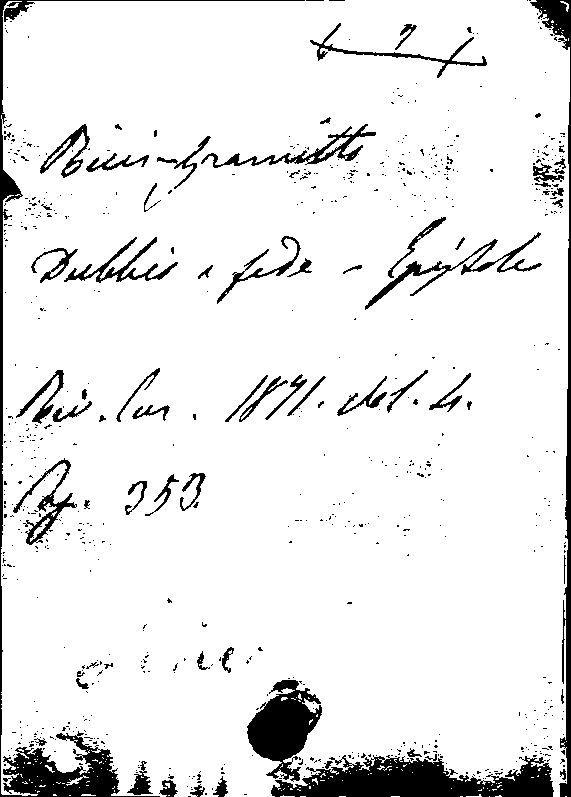 Ricci-Gramitto
Dubbio e fede - Epistole
Riv. Eur. 1871. vol. 4.
Pag. 353